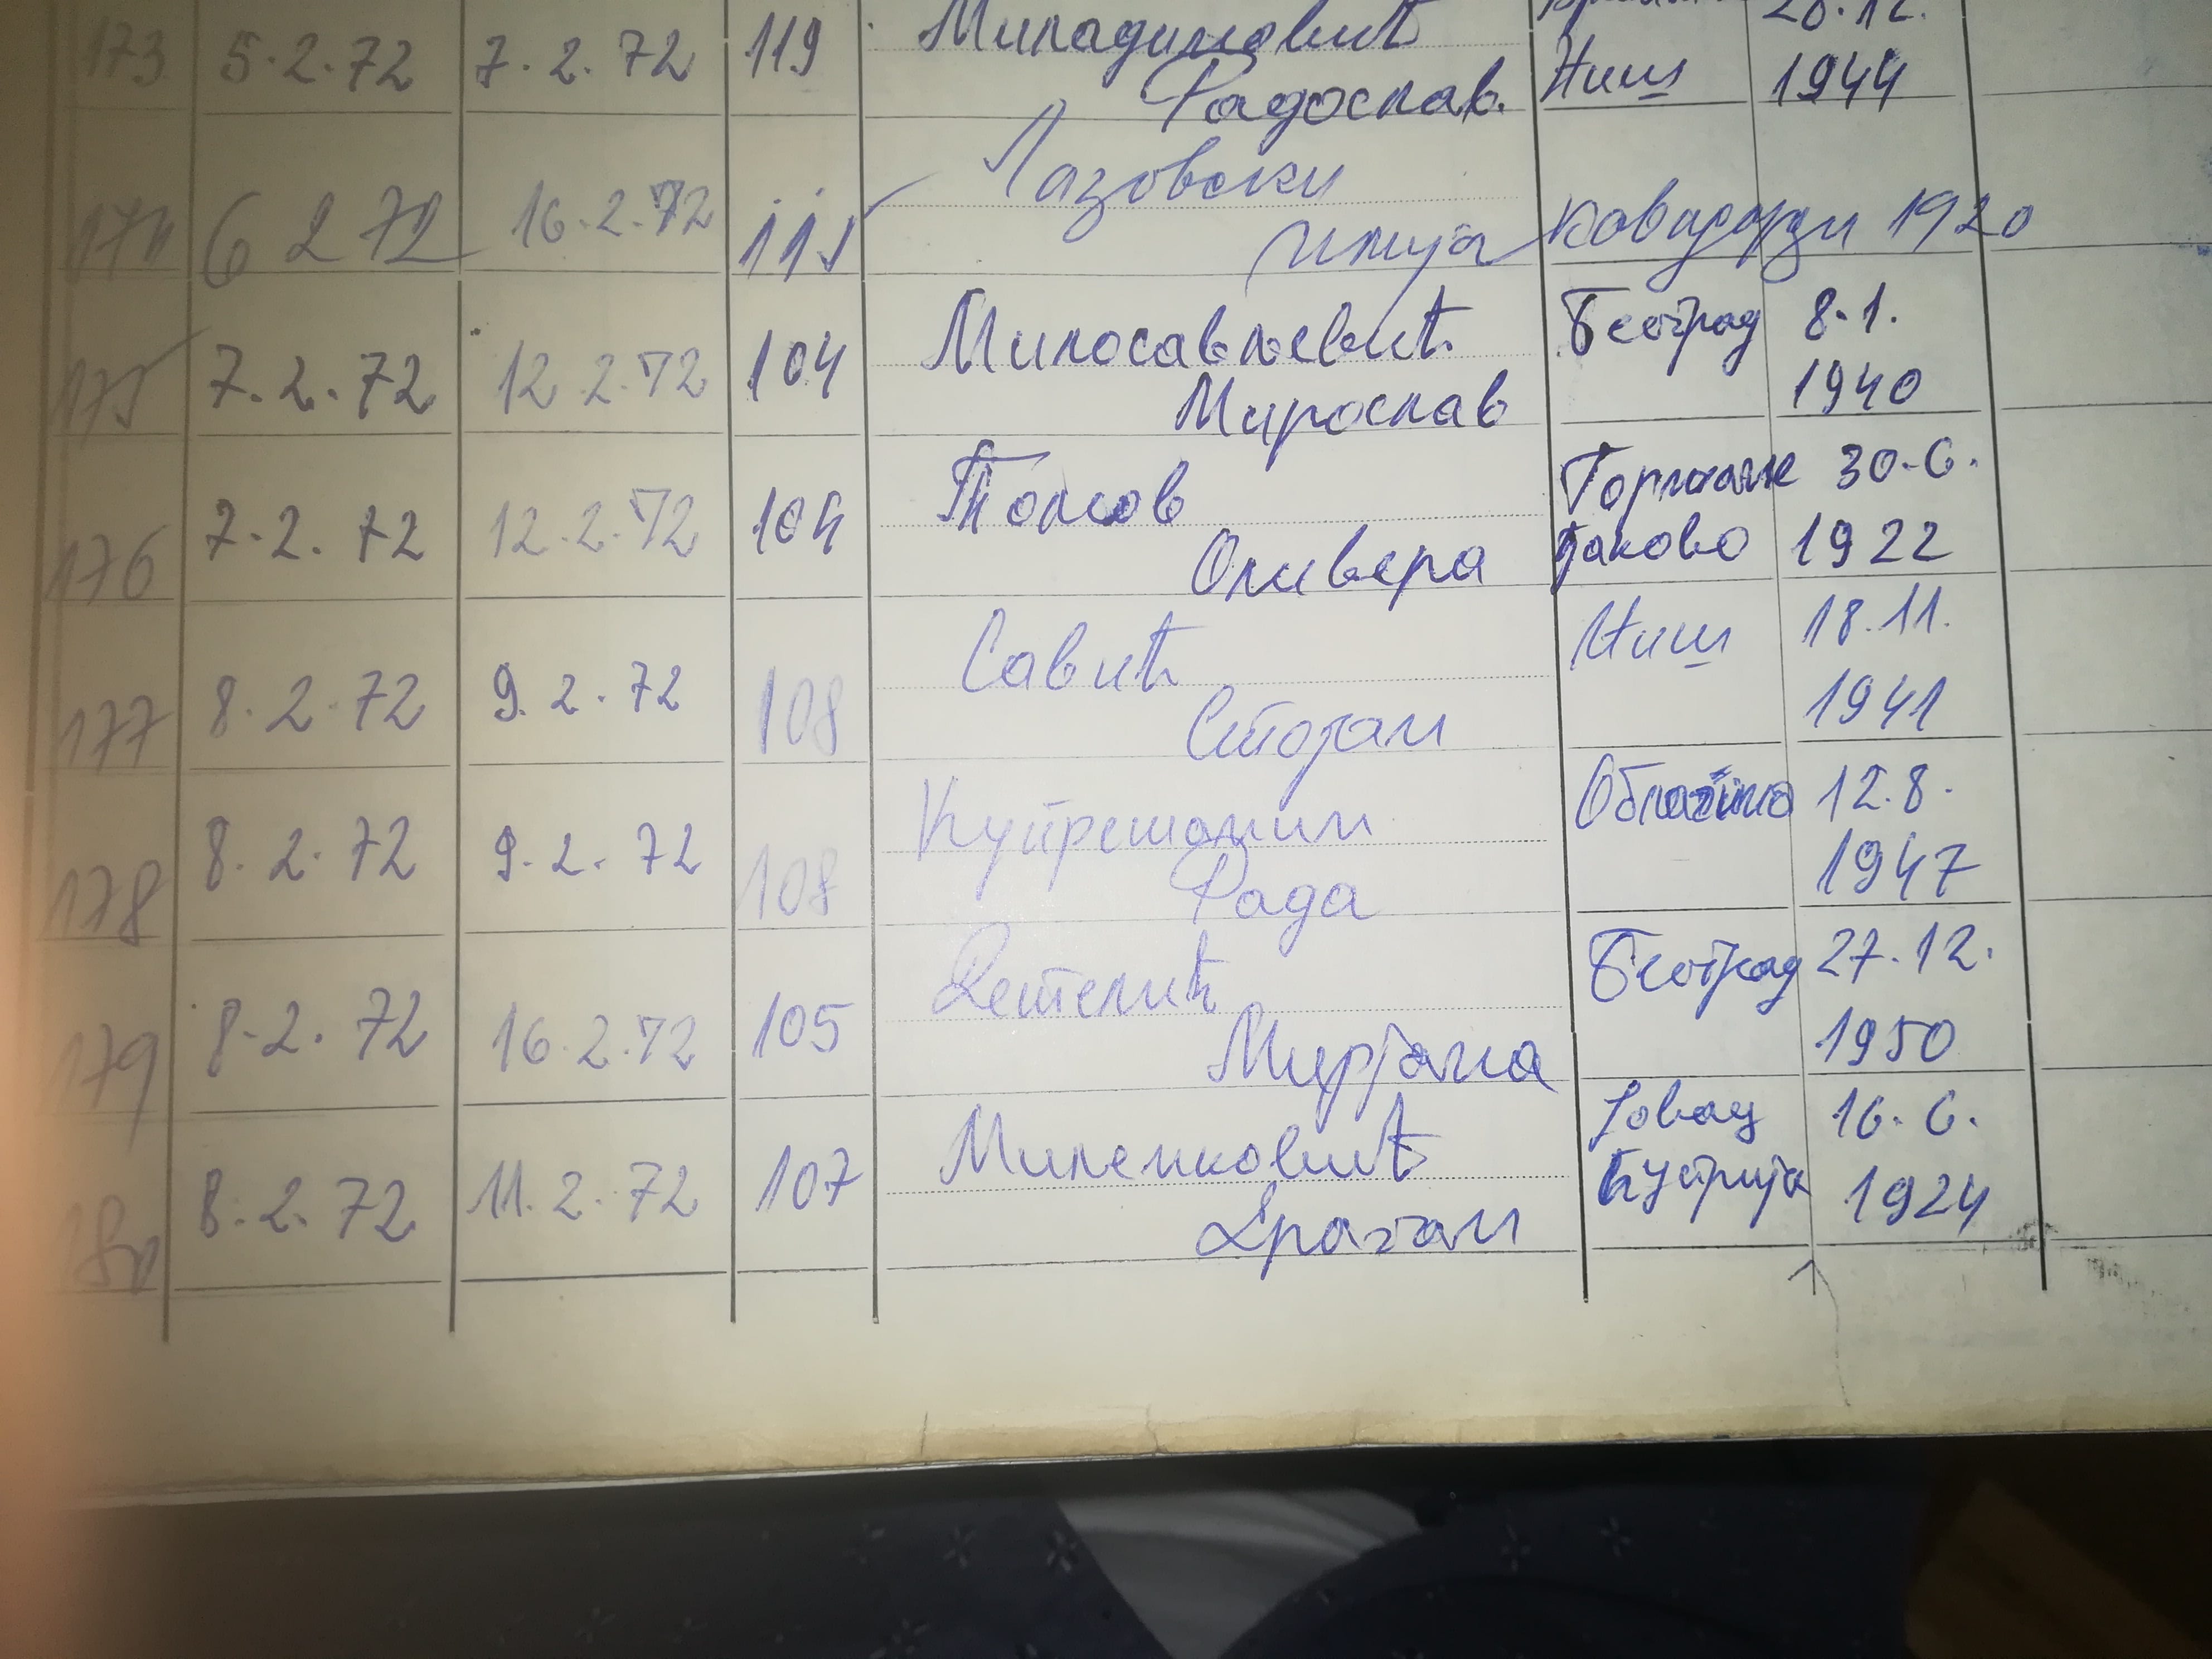 173 5.2.72 7.2.72 119 Миладиновић 20.12.
Радослав Ниш 1944
174 6 2 72 16.2.72 115 Лазовски
Илија Кавадарзи 1920
175 7.2.72 12 2.72 104 Милосављевић Београд 8.1.
Мирослав 1940
176 7.2.72 12.2.72 104 Попов 30.6.
Оливера Ђаково 1922
177 8.2.72 9.2.72 108 Савић Ниш 18.11.
Стојан 1941
178 8.2.72 9.2.72 108 Купрешанин Облачина 12.8.
Рада 1947
179 8.2.72 16.2.72 105 Детелић Београд 27.12.
Мирјана 1950
180 8.2.72 11.2.72 107 Миленковић Јовац 16.6.
Драган Ћуприја 1924